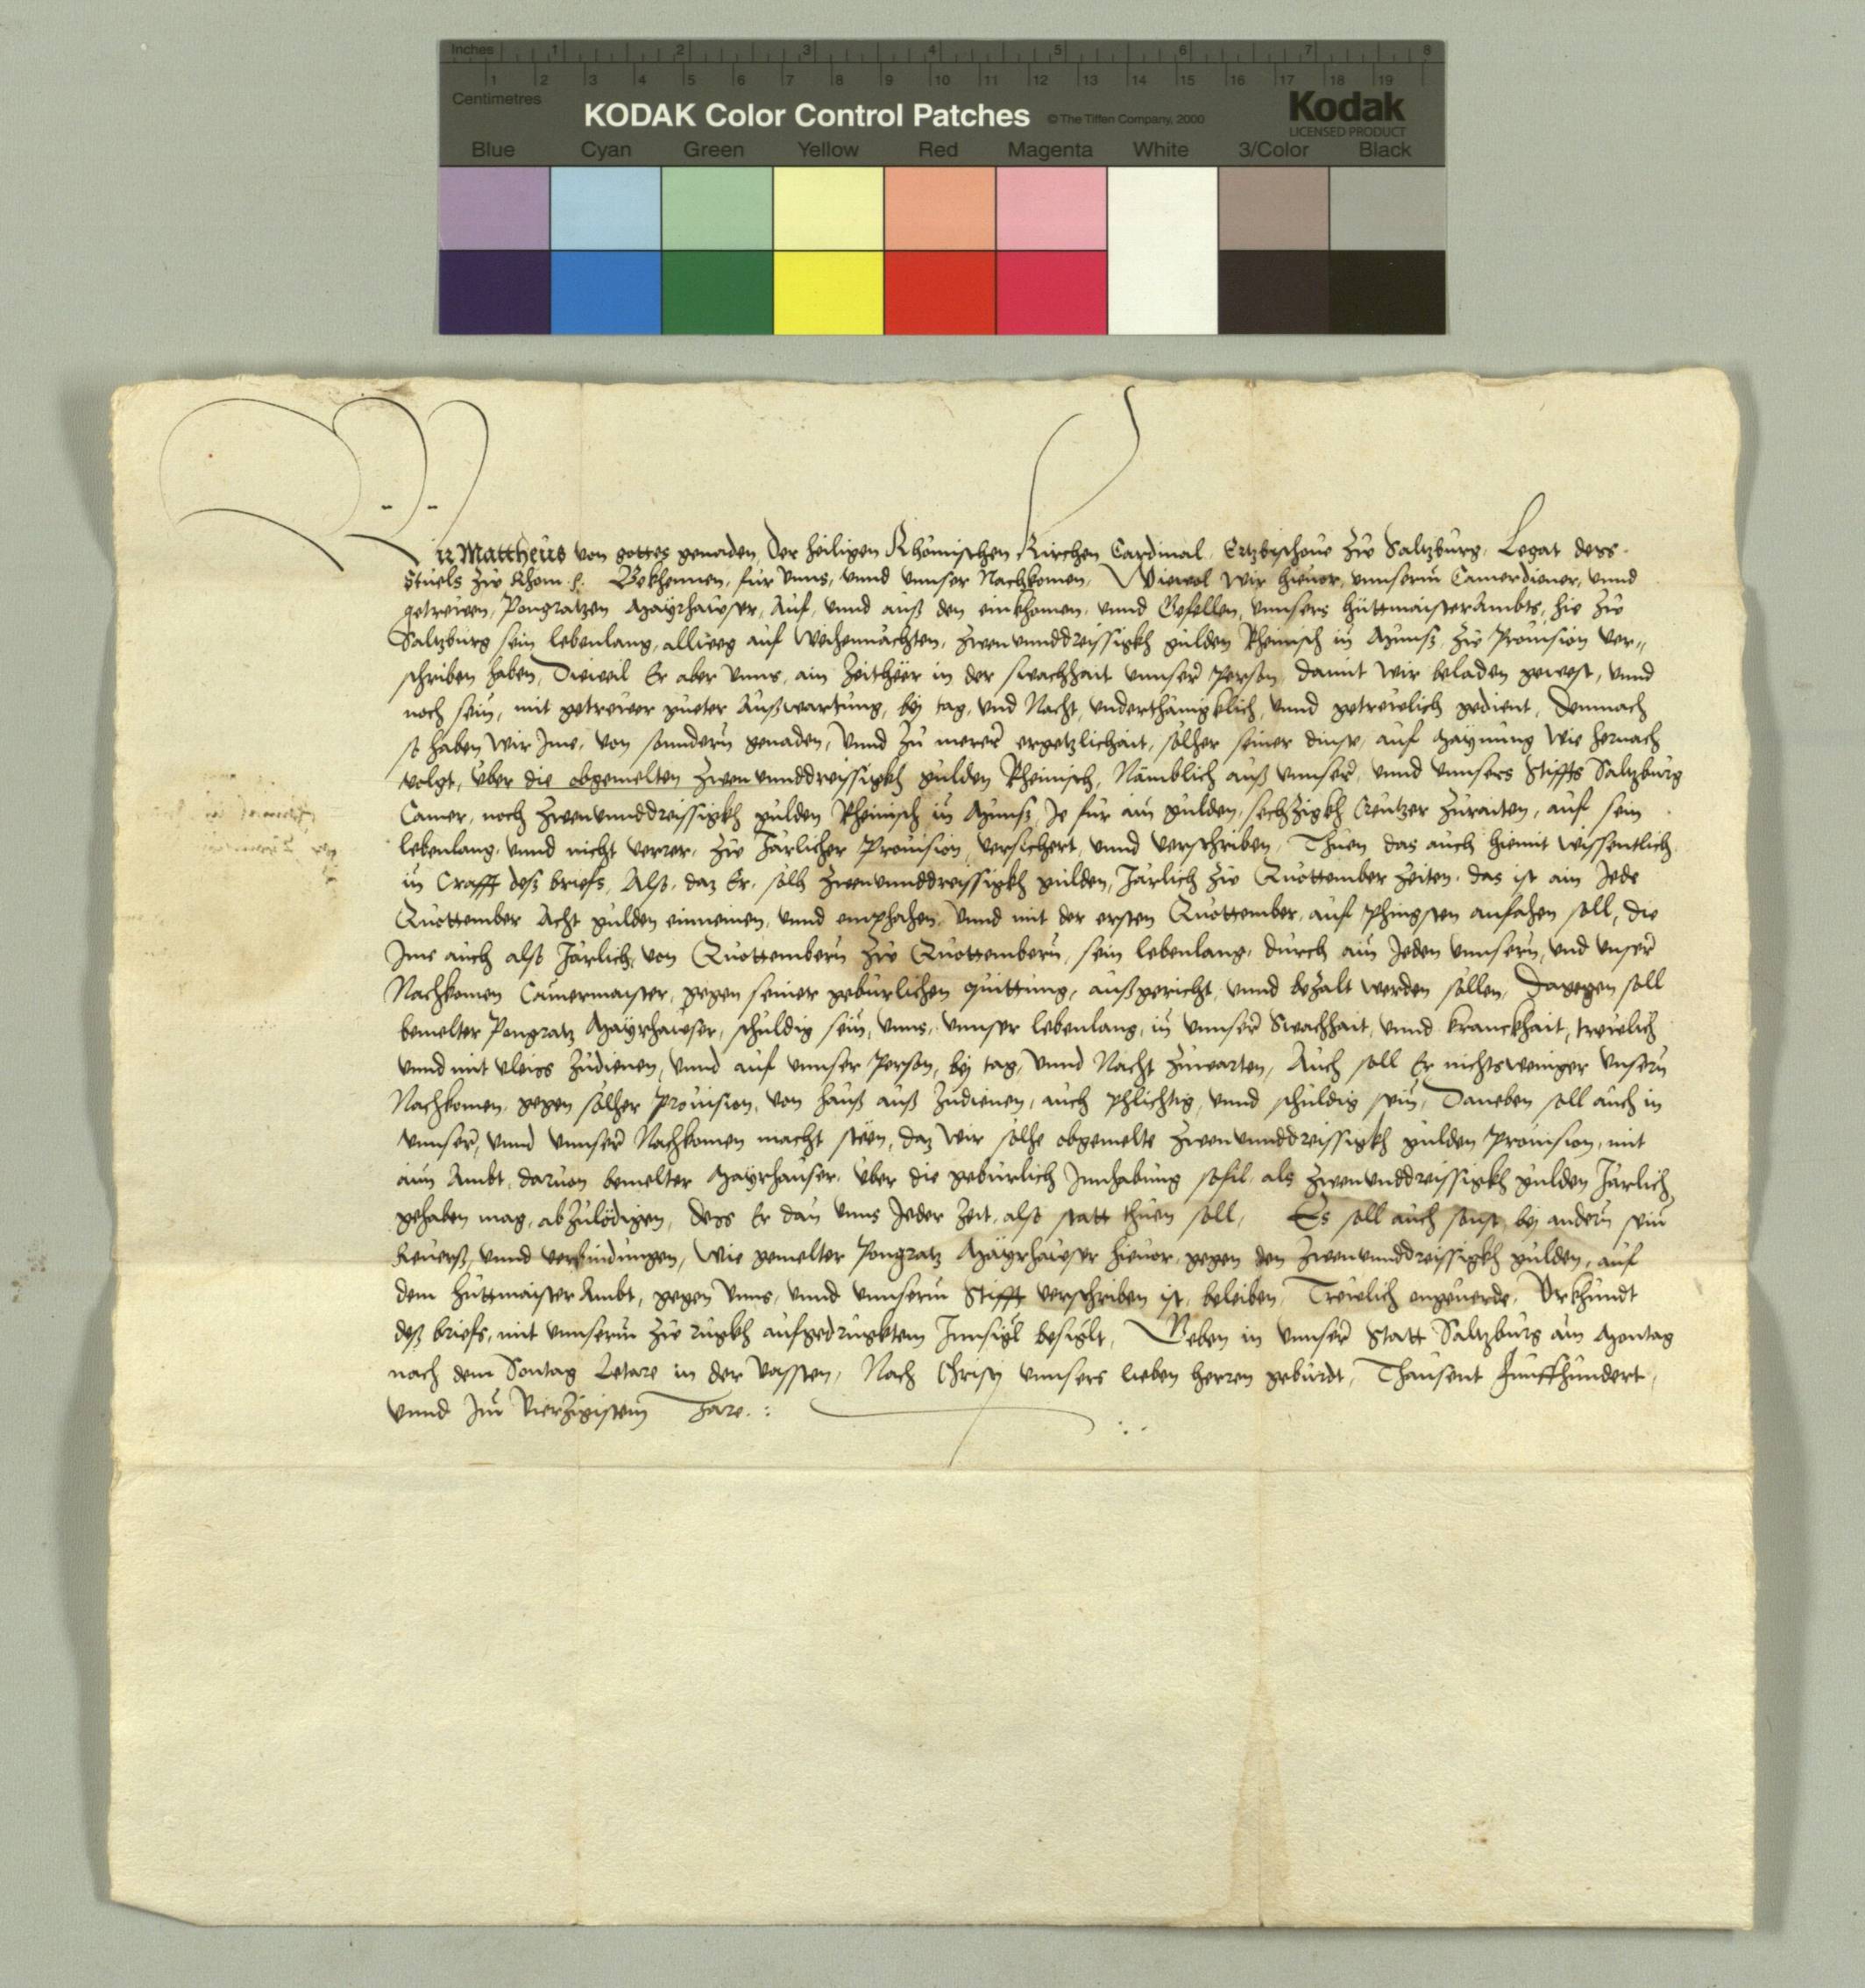 Inches 1 2 3 4 5 6 7 8
1 2 3 4 5 6 7 8 9 10 11 12 13 14 15 16 17 18 19
Centimetres
KODAK Color Control Patches © The Tiffen Company, 2000 Kodak
LICENSED PRODUCT
Blue Cyan Green Yellow Red Magenta White 3/Color Black
Wir Mattheus von gottes genaden, Der heiligen Rhömischen Kirchen Cardinal, Ertzbischoue zw Saltzburg, Legat dess
Stuels zw Rhom ꝛc. Bekhennen, für vnns, vnnd vnnser Nachkomen, Wiewol wir hieuor, vnnserm Camerdiener, vnnd
getrewen, Pongratzen Mayrhawser, Auf, vnnd auß den einkhomen, vnnd Gefellen, vnnsers hüttmaisterambts, hie zw
Saltzburg sein lebenlang, allweg auf Weihennachten, zwenvnnddreissigkh gulden Rheinisch in Münß, zw Prouision ver-
schriben haben, Dieweil Er aber vnns, ain Zeitheer in der swachhait vnnser person, damit wir beladen gewest, vnnd
noch sein, mit getrewer gueter Außwartung, bej tag, vnd Nacht, vnderthänigklich, vnnd getrewlich gedient, Demnach
so haben wir Jme, von sonndern genaden, vnnd zu merer ergetzlichait, solher seiner dinst, auf maynung wie hernach
volgt, vber die obgemelten zwenvnnddreissigkh gulden Rheinisch, Nämblich auß vnnser, vnnd vnnsers Stiffts Saltzburg
Camer, noch zwenvnnddreissigkh gulden Rheinisch in Münß, Je für ain gulden, sechzigkh Creutzer zuraiten, auf sein
lebenlang, vnnd nicht verrer, zw Järlicher Prouision, versichert, vnnd verschriben, Thuen das auch hiemit wissentlich
in Crafft deß briefs, Alß, daz Er, solh zwenvnnddreissigkh gulden, Järlich zw Quottember zeiten, das ist ain Jede
Quottember Acht gulden einnemen, vnnd emphahen, vnnd mit der ersten Quottember, auf Phingsten anfahen soll, die
Jme auch alß Järlich, von Quottembern zw Quottembern, sein lebenlang, durch ain Jeden vnnsern, vnd vnser
Nachkomen Camermaister, gegen seiner gebürlichen quittung, außgericht, vnnd bezalt werden sollen, Dagegen soll
bemelter Pongratz Mayrhawser, schuldig sein, vnns, vnnser lebenlang, in vnnser Swachhait, vnnd kranckhait, trewlich
vnnd mit vleiss zudienen, vnnd auf vnnser person, bej tag, vnnd Nacht zuwarten, Auch soll Er nichtsweniger vnsern
Nachkomen, gegen solher prouision, von hauß auß zudienen, auch phlichtig, vnnd schuldig sein, Daneben soll auch in
vnnser, vnnd vnnser Nachkomen macht steen, daz wir solhe obgemelte zwenvnnddreissigkh gulden prouision, mit
aim Ambt, daruon bemelter Mayrhauser, vber die gebürlich Innhabung souil, als zwenvnddreissigkh gulden Järlich,
gehaben mag, abzulödigen, dess Er dan vnns Jeder zeit, also statt thuen soll, Es soll auch sonst, bej andern sein
Reuerß, vnnd verpindungen, wie gemelter Pongratz Mayrhawser hieuor, gegen den zwenvnnddreissigkh gulden, auf
dem hüttmaister Ambt, gegen vnns, vnnd vnnserm Stifft verschriben ist, beleiben, Trewlich ongeuerde, Vrkhundt
deß briefs, mit vnnserm zw rugkh aufgedrugktem Innsigl besiglt, Geben in vnnser Statt Saltzburg am Montag
nach dem Sontag Letare in der Vassten, Nach Christj vnnsers lieben herren geburdt, Thausent Fünffhundert,
vnnd Im Vierzigistem Jare.